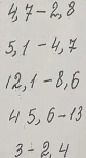 4,7-2,8
5,1-4,7
12,1-8,6
45,6-13
3-2,4